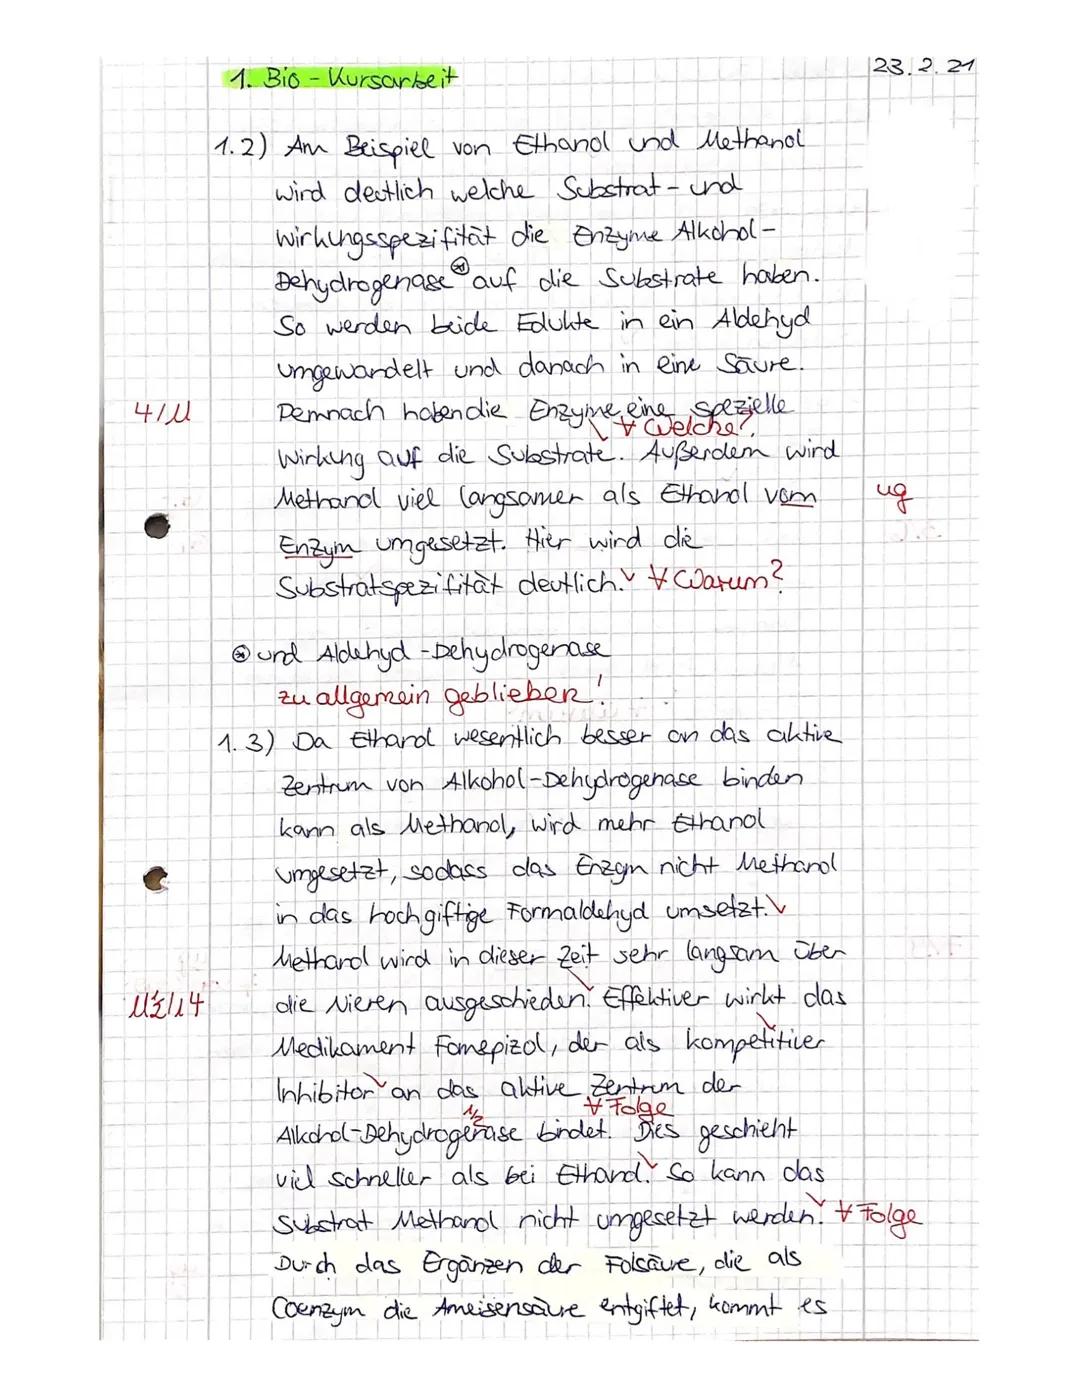 1. Bio - Kursarbeit
23.2.21
1.2) Am Beispiel von Ethanol und Methanol
wird deutlich welche Substrat- und
Wirkungsspezifität die Enzyme Alkohol-
Dehydrogenase ⊛ auf die Substrate haben.
So werden beide Edukte in ein Aldehyd
umgewandelt und danach in eine Säure.
4/11
Demnach haben die Enzyme eine spezielle
∀ Welche?
Wirkung auf die Substrate. Außerdem wird
Methanol viel langsamer als Ethanol vom
ug
Enzym umgesetzt. Hier wird die
Substratspezifität deutlich. ∀ Warum?
⊛ und Aldehyd-Dehydrogenase
zu allgemein geblieben!
1.3) Da Ethanol wesentlich besser an das aktive
Zentrum von Alkohol-Dehydrogenase binden
kann als Methanol, wird mehr Ethanol
umgesetzt, sodass das Enzym nicht Methanol
in das hochgiftige Formaldehyd umsetzt.
Methanol wird in dieser Zeit sehr langsam über
11½/14
die Nieren ausgeschieden. Effektiver wirkt das
Medikament Fomepizol, der als kompetitiver
Inhibitor an das aktive Zentrum der
½ ∀ Folge
Alkohol-Dehydrogenase bindet. Dies geschieht
viel schneller als bei Ethanol. So kann das
Substrat Methanol nicht umgesetzt werden. ∀ Folge
Durch das Ergänzen der Folsäure, die als
Coenzym die Ameisensäure entgiftet, kommt es